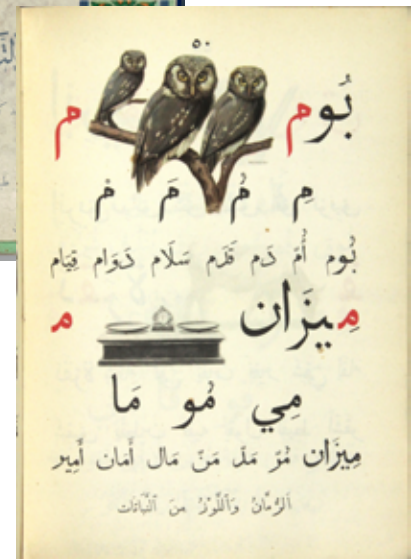 ٥٠
بُوم م
م
مِ مُ مَ مْ
بُوم أُمّ دَم قَدَم سَلَام دَوَام قِيَام
مِيزَان م
مِي مُو مَا
مِيزَان مُرّ مَدّ مَنّ مَال أَمَان أَمِير
اَلرُّمَّانُ وَاللَّوْزُ مِنَ النَّبَاتَات